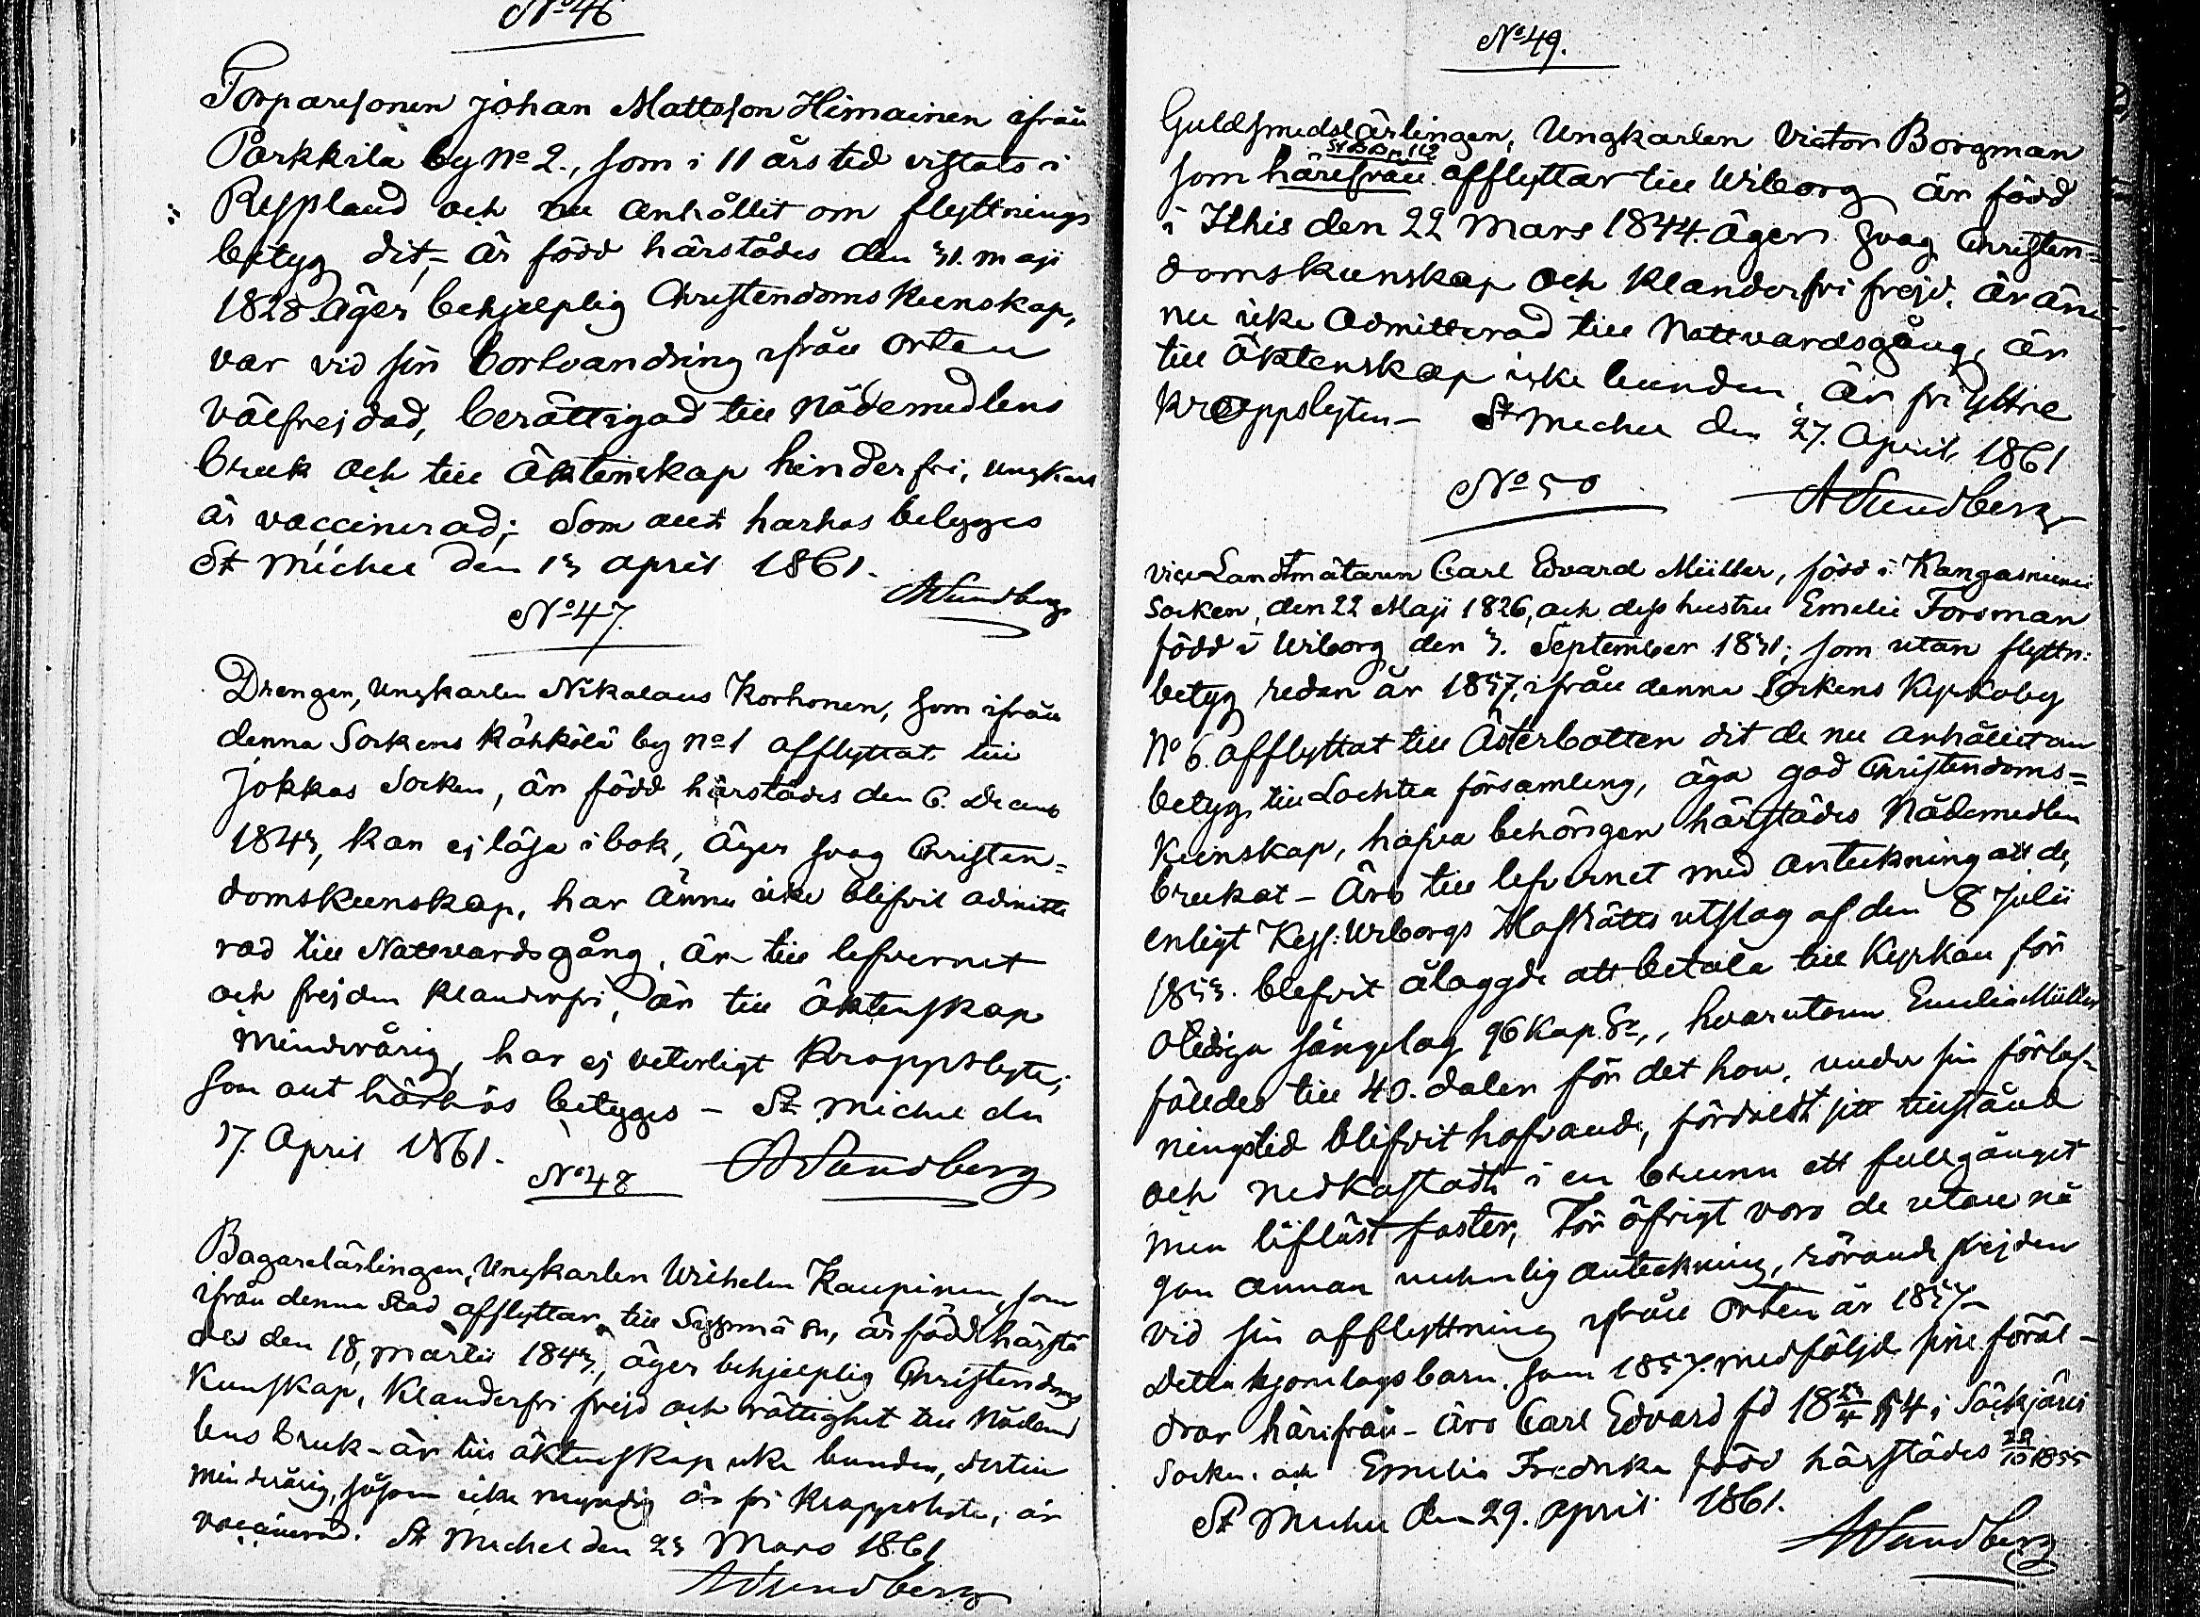 No 46
Torparesonen Johan Mattsson Himainen ifrån
Parkkila by No 2., som i 11 års tid vistats i
Ryssland och nu anhållit om flyttnings
betyg dit, är född härstädes den 31. Maji
1828. äger behjelplig Christendoms kunskap,
var vid sin bortvandring ifrån orten
välfrejdad, berättigad till Nådemedlens
bruk och till Äktenskap hinderfri, ungkarl
är vaccinerad; Som allt härhos betygges
St Michel den 13 April 1861.
A Sundberg
No 47.
Drengen, Ungkarlen Nikalaus Korhonen, som ifrån
denna Sockens Kähkölä by No 1 afflyttat till
Jokkas Socken, är född härstädes den 6. Decemb
1843, kan ej läsa i bok, äger svag Christen=
domskunskap, har ännu icke blifvit admitte
rad till Nattvardsgång, är till lefvernet
och frejden klanderfri, är till äktenskap
minderårig, har ej veterligt kroppslyte;
som allt härhos betygges – St Michel den
17. April 1861.
A Sundberg
No 48
Bagarelärlingen, Ungkarlen Wilhelm Kaupinen, som
ifrån denna Stad afflyttar till Sysmä sn, är född härstä
des den 18, Martii 1843., äger behjelplig Christendoms
Kunskap, Klanderfri frejd och rättighet till Nådemed
lens bruk – är till äktenskap icke bunden, dertill
minderårig, såsom icke myndig är fri kroppslyte, är
vaccinerad. St Michel den 23 Mars 1861
A Sundberg
No 49.
Guldsmedslärlingen, Ungkarlen Victor Borgman
som härifrån afflyttar till Wiborg är född
i Ithis den 22 Mars 1844. äger Svag Christen=
domskunskap och klanderfri frejd, är än
nu icke admitterad till Nattvardsgång, är
till Äktenskap icke bunden, är fri yttre
kroppslyten – St Michel den 27. April 1861
A Sundberg
No 50
vice Landtmätaren Carl Edvard Müller, född i Kangasniemi
Socken, den 22 Maji 1826, och dess hustru Emelie Forsman
född i Wiborg den 3. September 1831; som utan flyttn:
betyg redan år 1857, ifrån denna Sockens Kyrkoby
No 6. afflyttat till Österbotten dit de nu anhållit om
betyg, till Lochtea församling, äga god Christendoms=
Kunskap, hafva behörigen härstädes Nådemedlen
brukat – Äro till lefvernet med anteckning att de,
enligt Kejs: Wiborgs Hofrätts utslag af den 8 Julii
1853. blefvit ålaggde att betala till Kyrkan för
otidiga sängelag 96 Kop. Sr., hvarutom Emelia Müller
fälldes till 40. daler för det hon, under sin förlof-
ningstid blifvit hafvande, fördöldt sitt tillstånd
och nedkastadt i en brunn ett fullgånget
men liflöst foster, För öfrigt voro de utan nå
gon annan menlig anteckning, rörande frejden
vid sin afflyttning ifrån Orten år 1857 –
Detta hjonelags barn, som 1857. medföljde sine föräl –
drar härifrån – äro Carl Edvard fd 18 23/4 54 i Säckjärvi
Socken. och Emelia Fredrika född härstädes 28/10 1855
St Michel den 29. April 1861.
A Sundberg